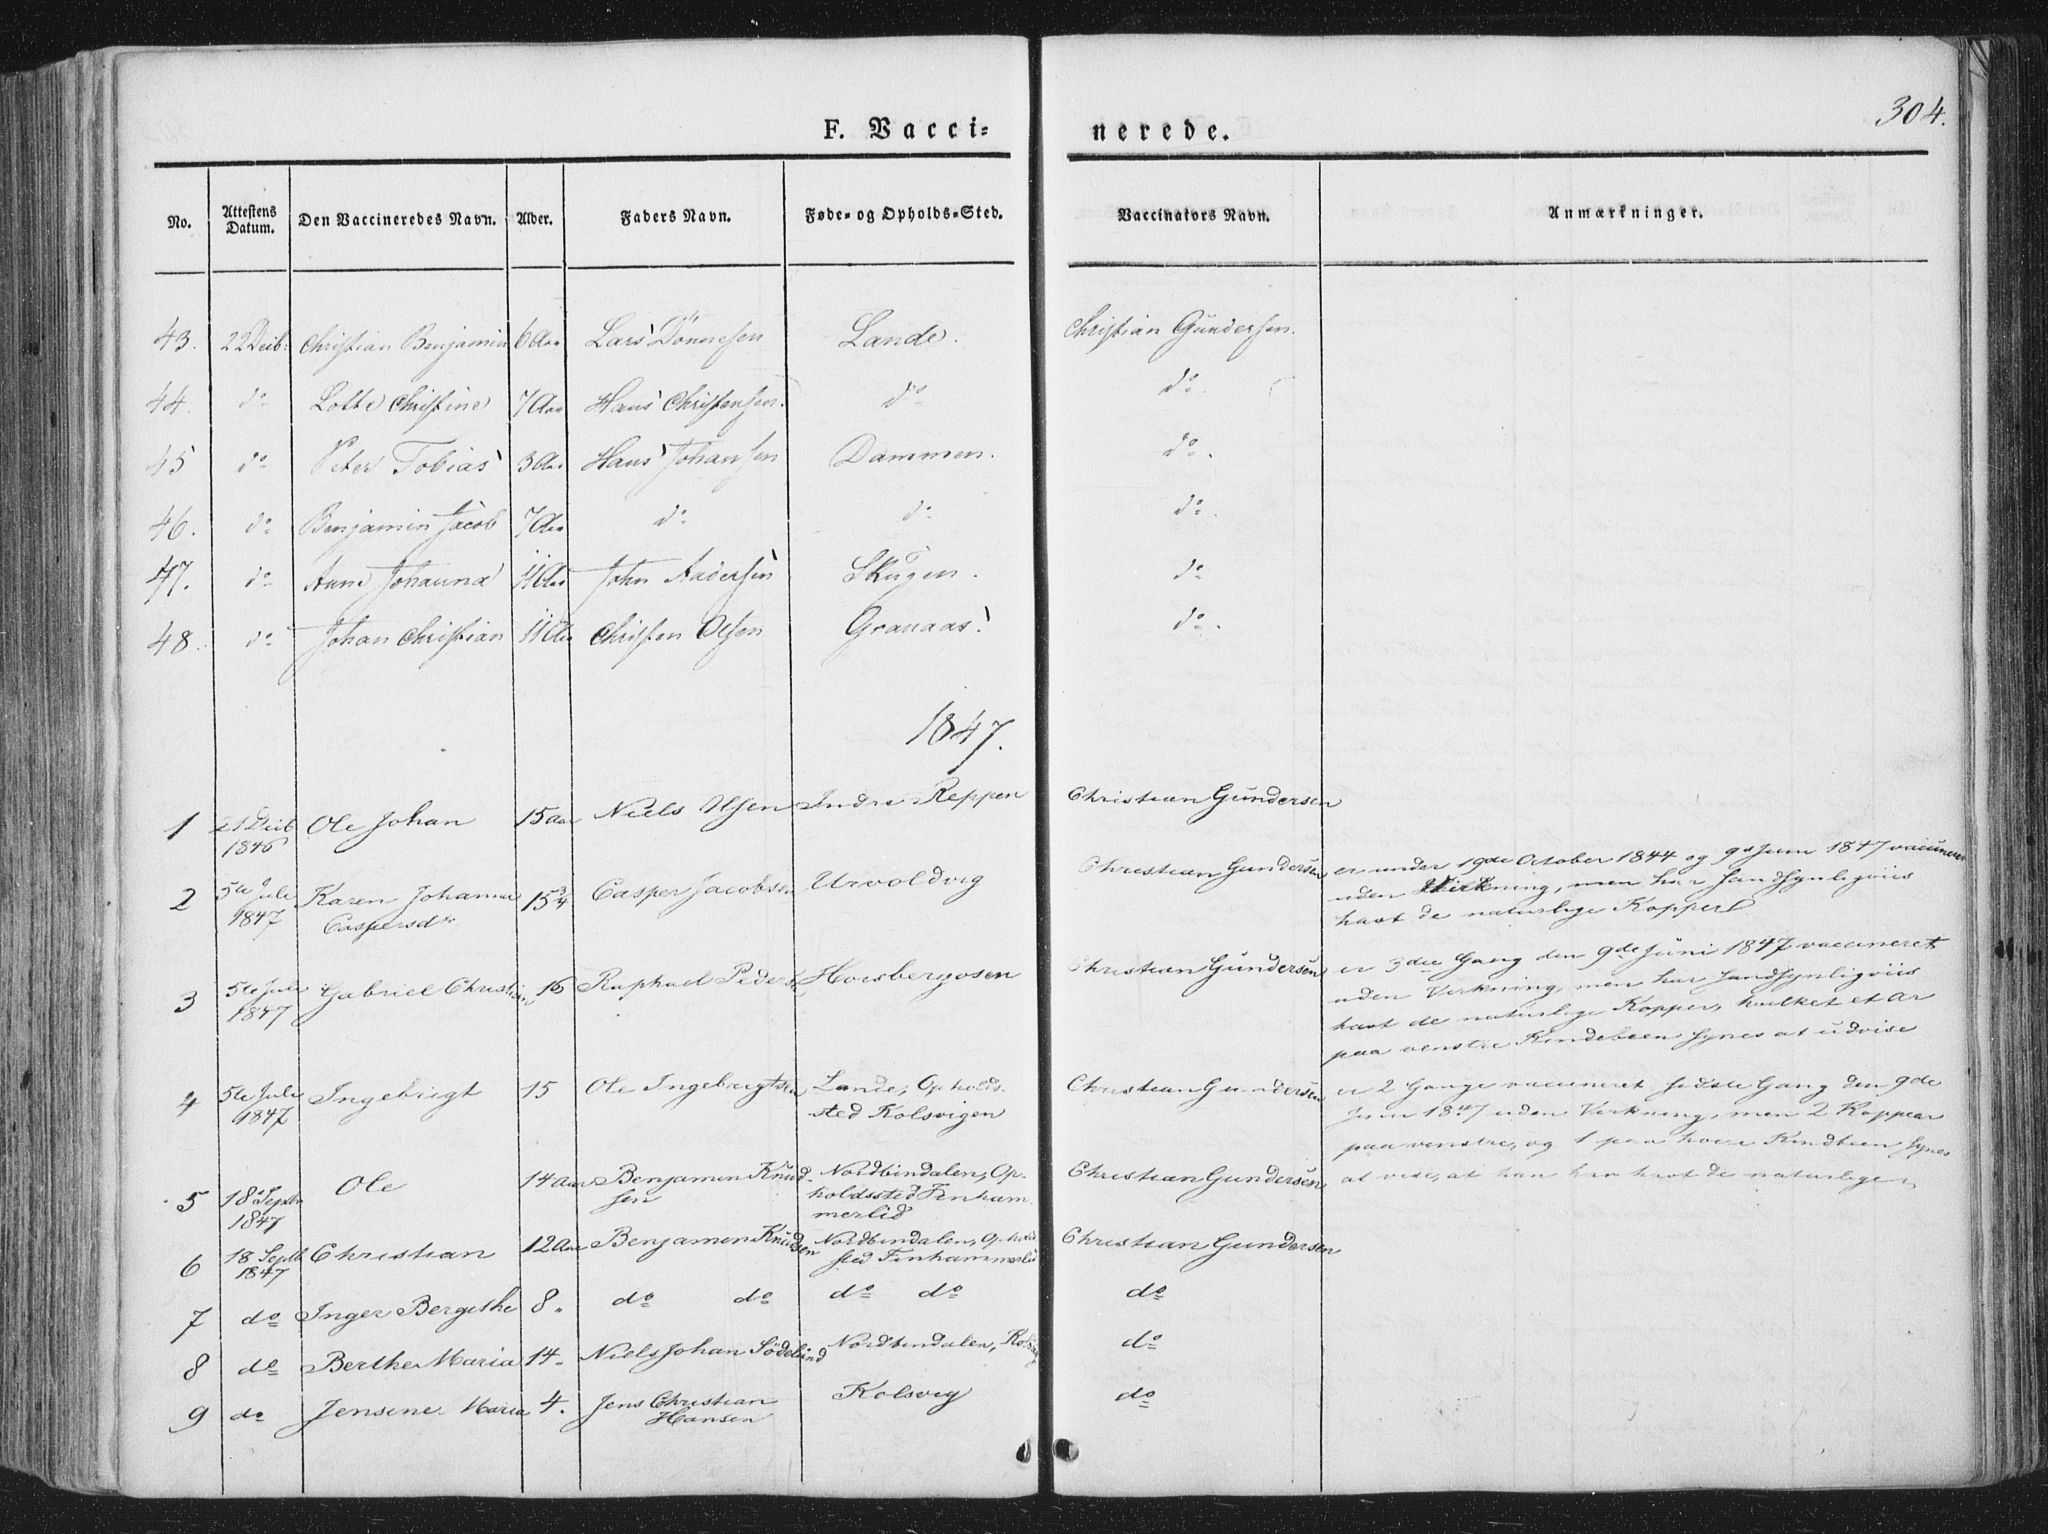 304.
F. Vacci= nerede.
No. Attestens Datum. Den Vaccineredes Navn. Alder. Faders Navn. Føde= og Opholds=Sted. Vaccinators Navn. Anmærkninger.
43. 22 Decb. Christian Benjamin 6 Aar Lars Dønnesen Lande. Christian Gundersen.
44. do Lotte Christine 7 Aar Hans Christensen. do do.
45 do Peter Tobias 3 Aar Hans Johansen Dammen. do.
46. do Benjamin Jacob 7 Aar do do do.
47. do Anne Johanna 11 Aar John Andersen Skugen. do
48. do Johan Christian 11 Aar Christen Olsen Granaas. do.
1847.
1 21 Decb 1846 Ole Johan 15 Aar Niels Olsen Indre Reppen Christian Gundersen
2 5te Juli 1847 Karen Johanna Caspersdr 15 3/4 Casper Jacobsen Urvoldvig Christian Gundersen
er under 19de October 1844 og 9d Juni 1847 vaccineret
uden Virkning, men har sandsynligviis
havt de naturlige Kopper
3 5te Juli 1847 Gabriel Christian 16 Raphael Peders Horsbergosen Christian Gundersen
er 3die Gang den 9de Juni 1847 vaccineret
uden Virkning, men har sandsynligviis
havt de naturlige Kopper, hvilket et Ar
paa venstre Kindebeen synes at udvise
4 5te Juli 1847 Ingebrigt 15 Ole Ingebrigtsen Lande, Opholds- sted Kolsvigen Christian Gundersen
er 2 Gange vaccineret sidste Gang den 9de
Juni 1847 uden Virkning, men 2 Koppear
paa venstre, og 1 paa høire Kindbeen synes
at vise, at han har havt de naturlige
5 18 Septr 1847 Ole 14 Aar Benjamen Knud- sen Nordbindalen, Op- holdssted Finham- merlid Christian Gundersen
6 18 Septb 1847 Christian 12 Aar Benjamen Knudsen Nordbindalen, Opholds sted Finhammerlid Christian Gundersen
7 do Inger Bergithe 8 „ do do do do do
8 do Berthe Maria 14 „ Niels Johan Södelind Nordbindalen, Kolsvig do
9 do Jensine Maria 4. Jens Christian Hansen Kolsvig do